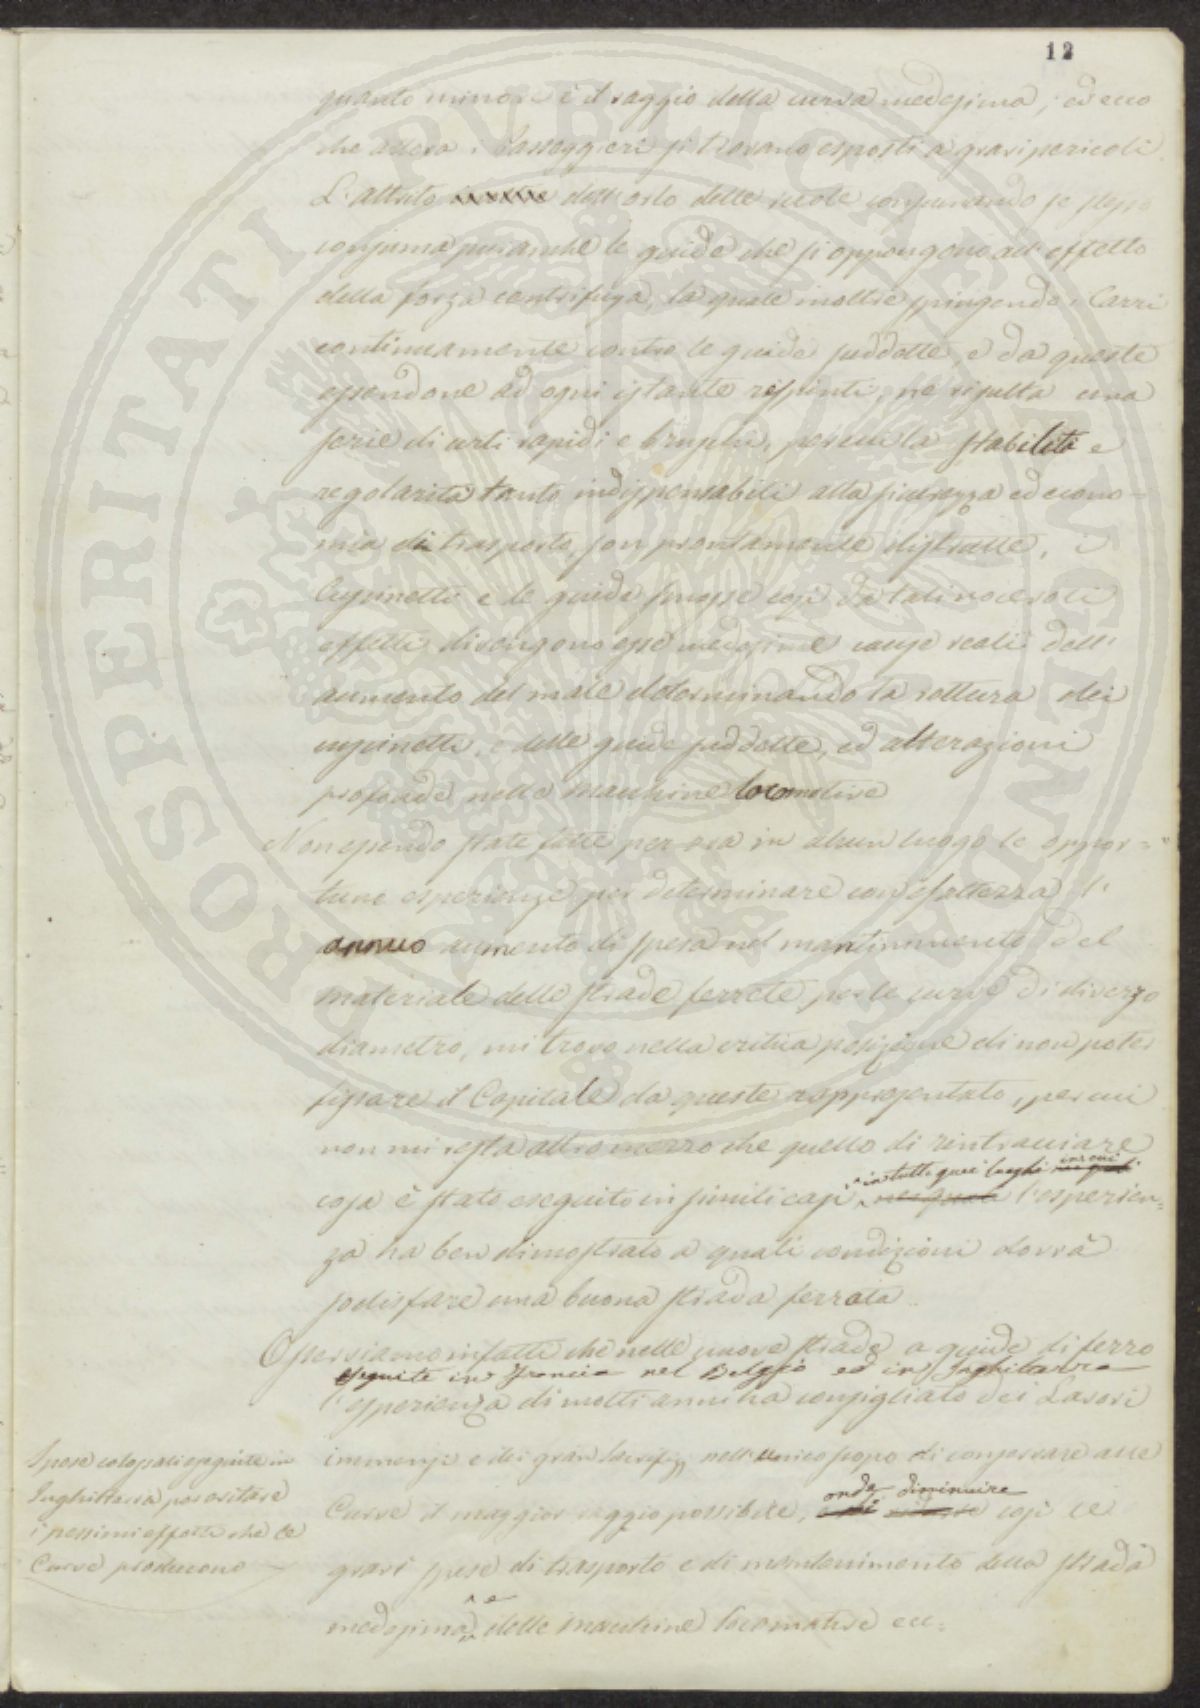 12
quanto minore è il raggio della curva medesima; ed ecco
che allora i Passeggieri si trovano esposti a gravi pericoli.
L'attrito dell'orlo delle ruote consumando se stesso
consuma pur anche le guide che si oppongono all'effetto
della forza centrifuga, la quale inoltre spingendo i Carri
continuamente contro le guide suddette, e da queste
essendone ad ogni istante respinti, ne risulta una
serie di urti rapidi e bruschi, per cui la stabilità e
regolarità tanto indispensabili alla sicurezza ed econo=
mia di trasporto, son prontamente distrutte, i
Cuscinetti e le guide smosse così da tali nocevoli
effetti divengono esse medesime cause reali dell'
aumento del male determinando la rottura dei
cuscinetti, e delle guide suddette, ed alterazioni
profonde nelle Macchine locomotive
Non essendo state fatte per ora in alcun luogo le oppor=
tune esperienze per determinare con esattezza l'
annuo aumento di spesa nel mantenimento del
materiale delle strade ferrate, per le curve di diverso
diametro, mi trovo nella critica posizione di non poter
fissare il Capitale da queste rappresentato, per cui
non mi resta altro mezzo che quello di rintracciare
in tutti quei luoghi in cui
cosa è stato eseguito in simili casi, l'esperien=
za ha ben dimostrato a quali condizioni dovrà
sodisfare una buona strada ferrata
Osserviamo infatti che nelle nuove strade a guide di ferro
eseguite in Francia nel Belgio ed in Inghilterra
l'esperienza di molti anni ha consigliato dei Lavori
immensi e dei gran Sacrifizj nell'unico scopo di conservare alle
onde diminuire
Curve il maggior raggio possibile, così le
gravi spese di trasporto e di mantenimento della strada
medesima e delle Macchine locomotive ecc.
Spese colossali eseguite in
Inghilterra per evitare
i pessimi effetti che le
Curve producono
PROSPERITATI PVBLICAE AVGENDAE